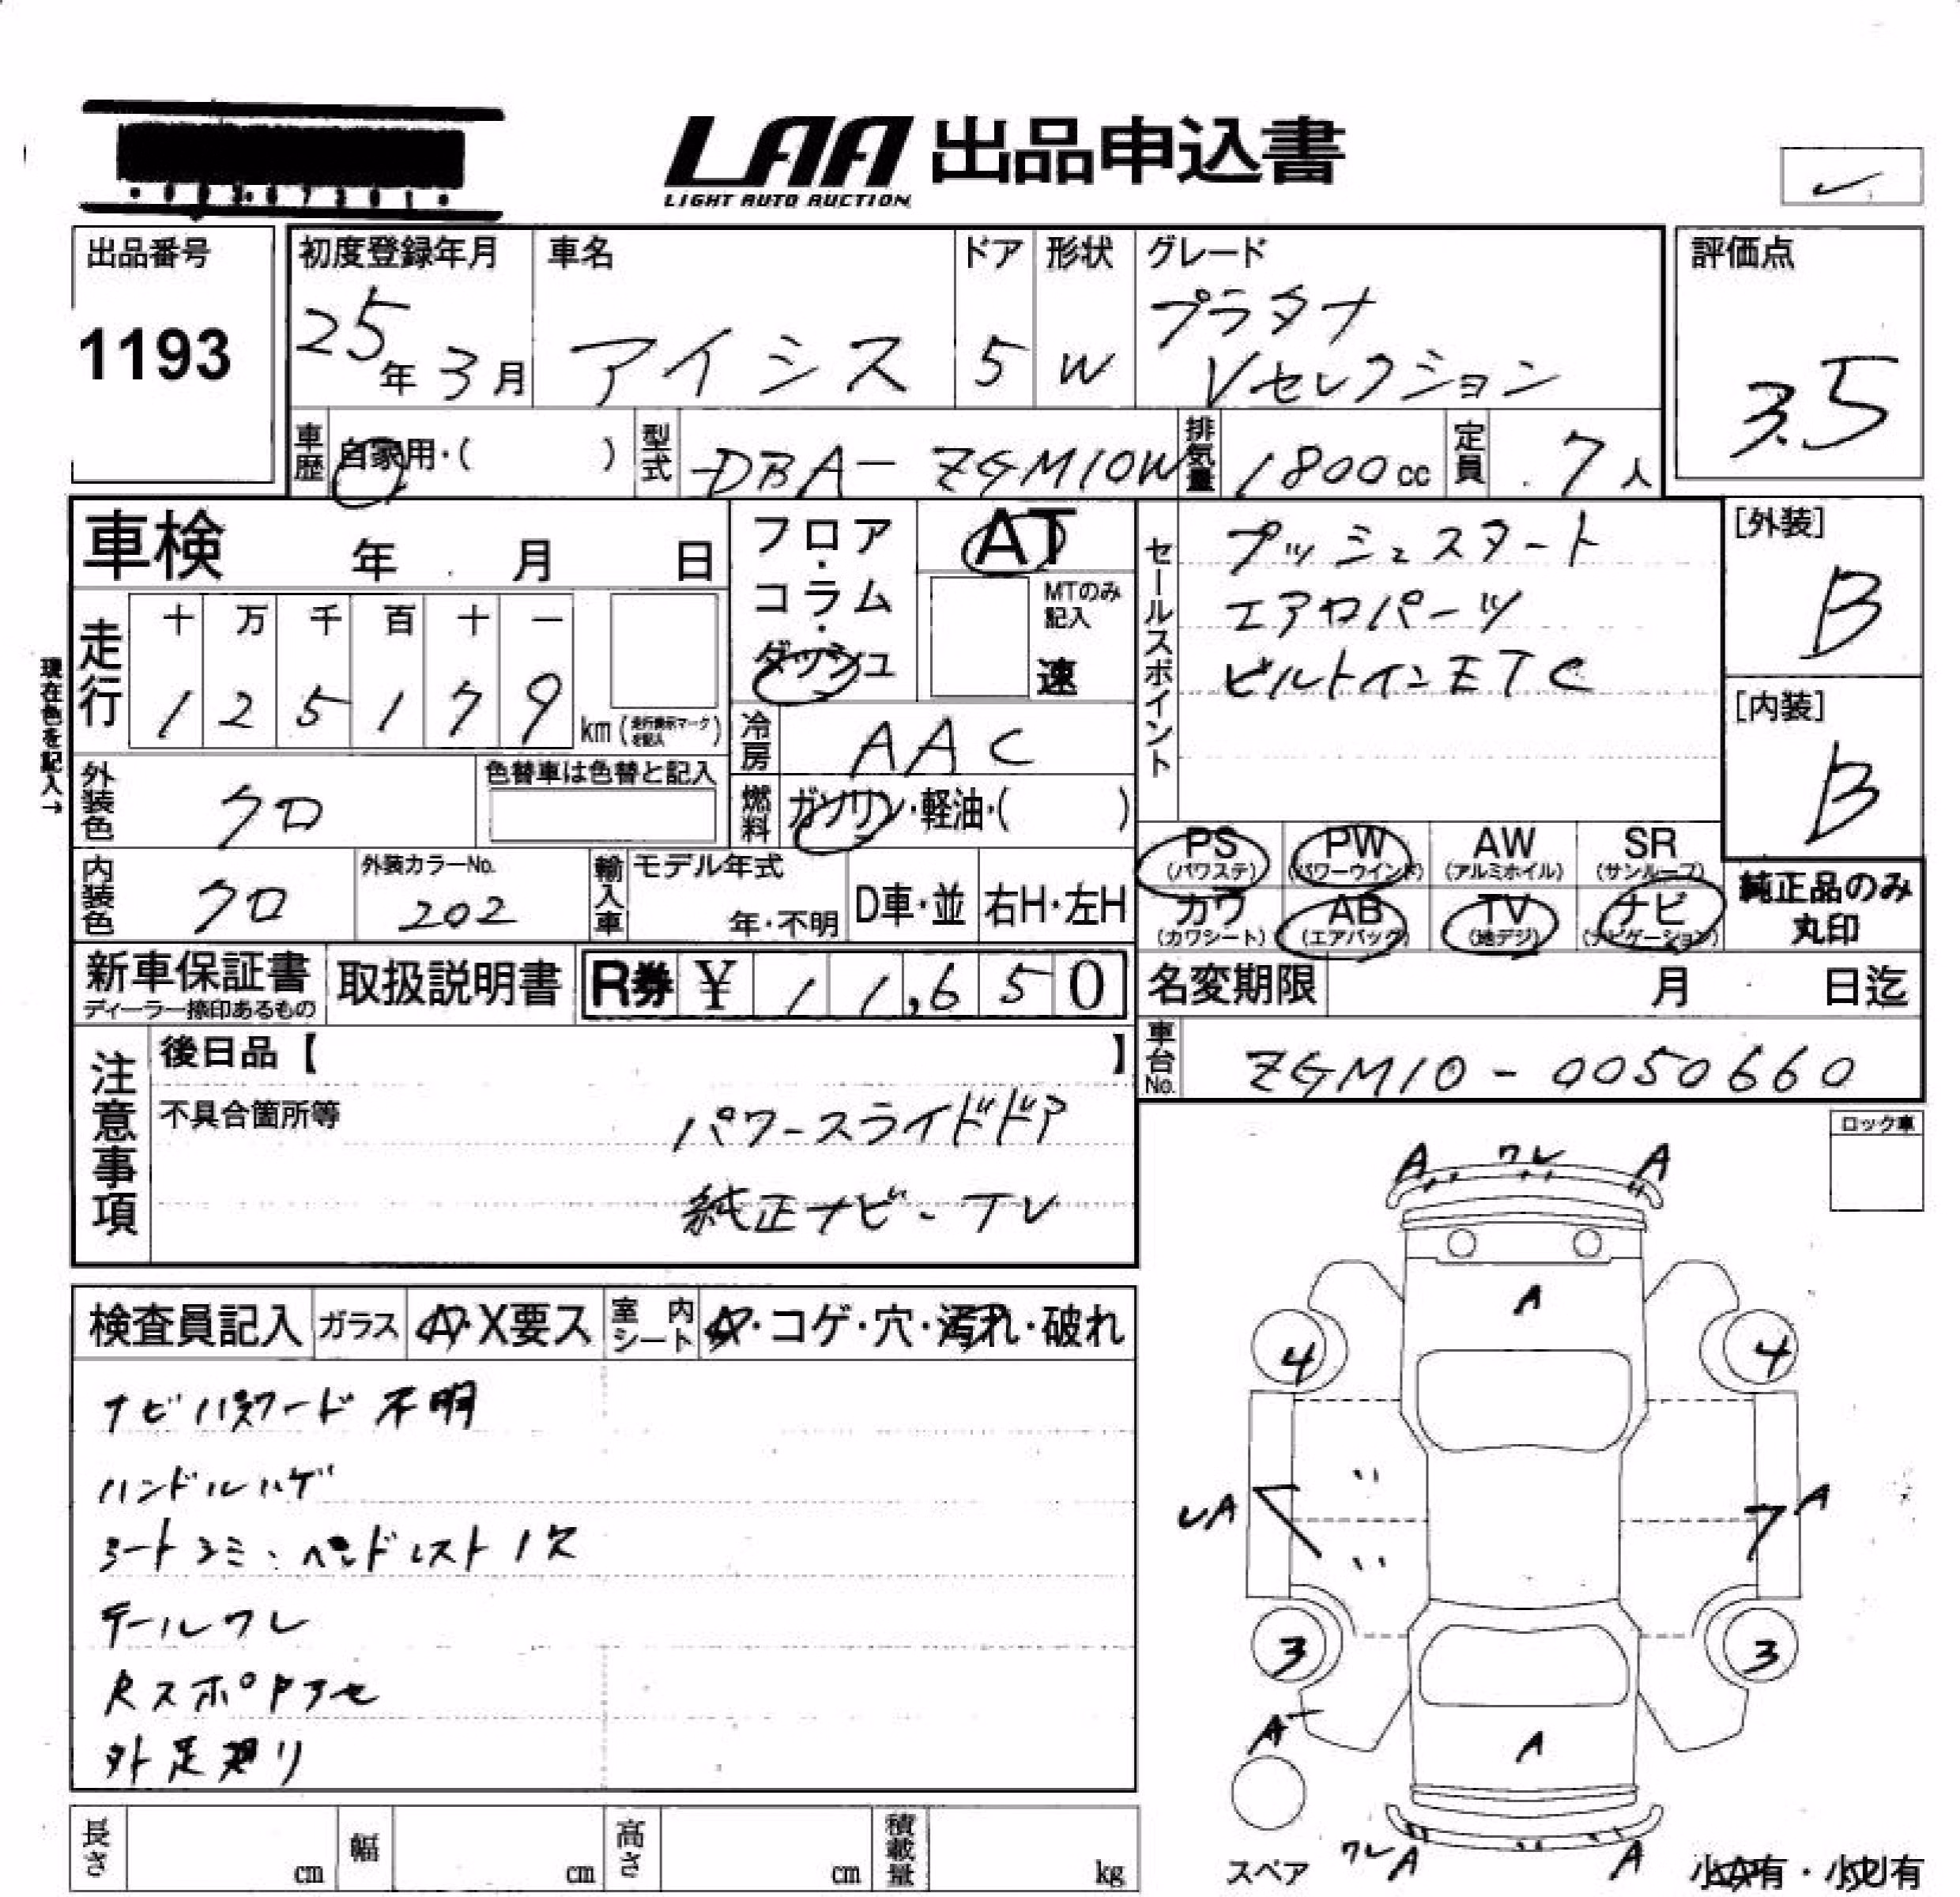 LAA 出品申込書
LIGHT AUTO AUCTION
出品番号
1193
初度登録年月
25年3月
車名
アイシス
ドア
5
形状
W
グレード
プラタナ
Vセレクション
評価点
3.5
車歴
自家用・( )
型式
DBA-ZGM10W
排気量
1800cc
定員
7人
車検 年 月 日
フロア・コラム・ダッシュ
AT
MTのみ記入
速
セールスポイント
プッシュスタート
エアロパーツ
ビルトインETC
[外装]
B
[内装]
B
現在色を記入→
走行
十 万 千 百 十 一
1 2 5 1 7 9
km
冷房
AAC
外装色
クロ
色替車は色替と記入
燃料
ガソリン・軽油・( )
PS (パワステ)
PW (パワーウインド)
AW (アルミホイル)
SR (サンルーフ)
カワ (カワシート)
AB (エアバック)
TV (地デジ)
ナビ (ナビゲーション)
純正品のみ
丸印
内装色
クロ
外装カラーNo.
202
輸入車
モデル年式
年・不明
D車・並
右H・左H
新車保証書
ディーラー捺印あるもの
取扱説明書
R券 ¥ 11,650
名変期限 月 日迄
車台No.
ZGM10-0050660
注意事項
後日品【 】
不具合箇所等
パワースライドドア
純正ナビ・TV
ロック車
検査員記入
ガラス
A・X要ス
室内シート
・コゲ・穴・汚れ・破れ
ナビパスワード不明
ハンドルハゲ
シートシミ・ヘッドレスト1欠
テールワレ
Rスポイラアセ
外足廻リ
A ワレ A
A
4 4
A
A
3 3
A
A
ワレ A
A
スペア
長さ cm
幅 cm
高さ cm
積載量 kg